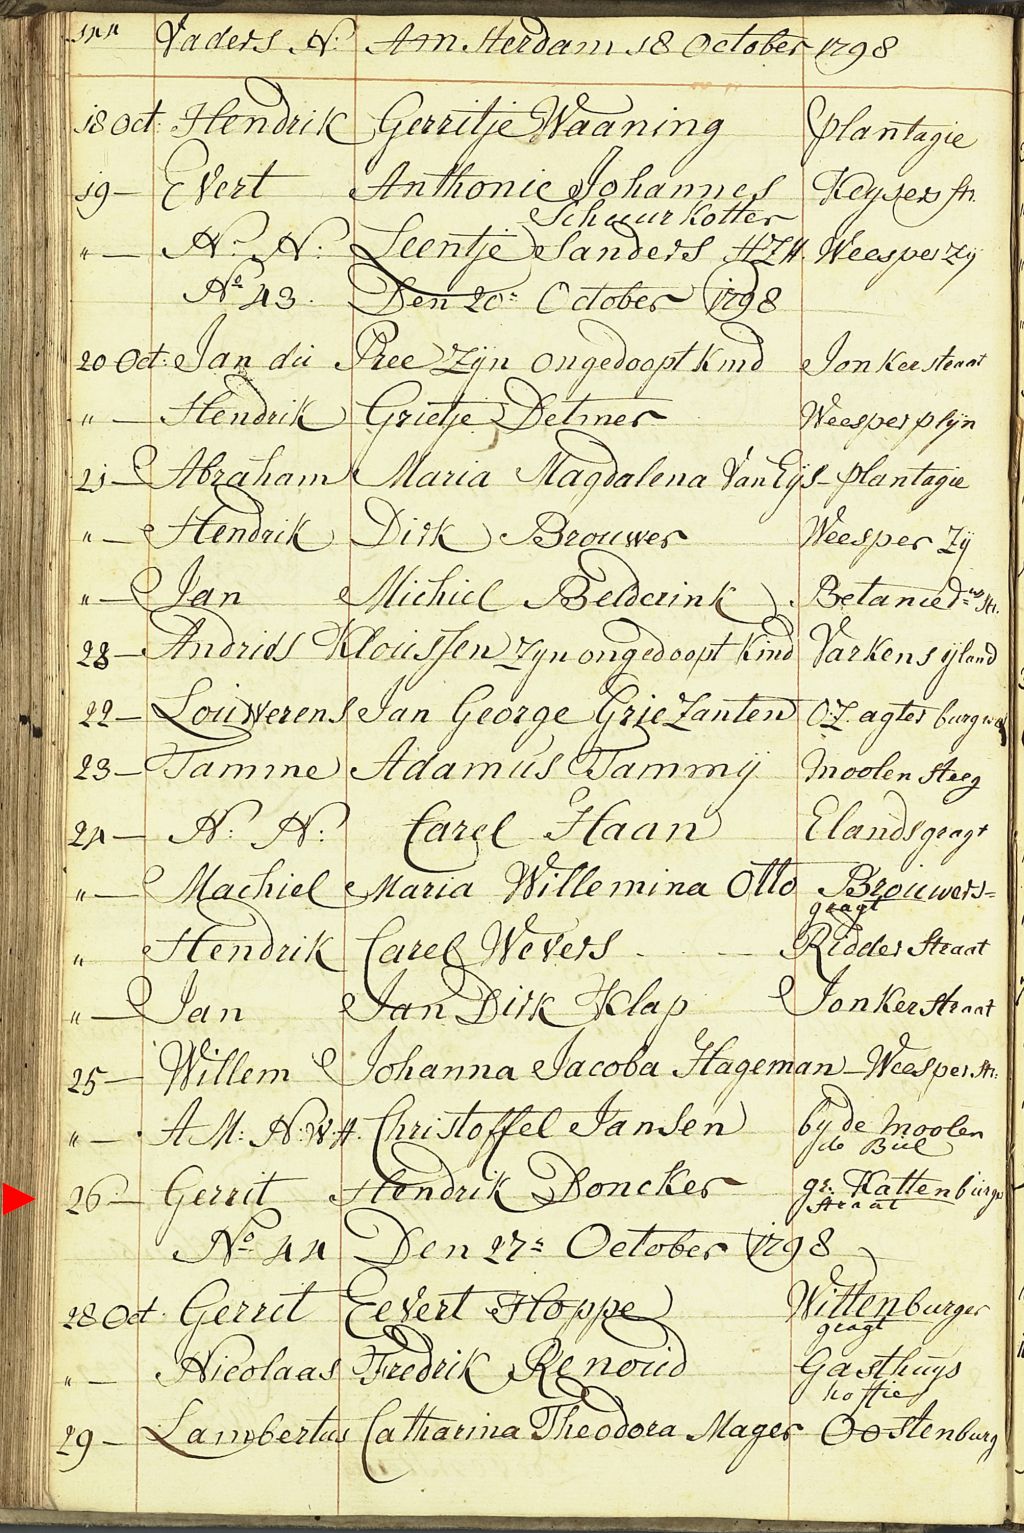 144 Vaders N: Amsterdam 18 October 1798
18 Oct: Hendrik Gerritje Waaning plantagie
19 — Evert Anthonie Johannes Keyser str.
Schuurkotter
" — N: N: Leentje Sanders HZH. Weesper Zij
No 43. Den 20: October 1798
20 Oct: Jan du Pree Zijn ongedoopt kind Jonkerstraat
" — Hendrik Grietje Detmer Weesperplijn
21 — Abraham Maria Magdalena Van Eijs — plantagie
" — Hendrik Dirk Brouwer Weesper Zij
" — Jan Michiel Belderink Betanied.w str.
28 — Andries Kloussen Zyn ongedoopt kind Varkens ijland
22 — Louwerens Jan George Griezanten O:Z. agter burgwal
23 — Tamme Adamus Tammij Moolen steeg
24 — N: N: Carel Haan Elandsgragt
" — Machiel Maria Willemina Otto Brouwers=
gragt
" Hendrik Carel Wevers Ridder Straat
" — Jan Jan Dirk Klap Jonkerstraat
25 — Willem Johanna Jacoba Hageman — Weesper str:
" — A M: N: W H. Christoffel Jansen by de Moolen
de Bul
26 — Gerrit Hendrik Doncker gr: Kattenburger
Straat
No 44 Den 27: October 1798
28 Oct: Gerrit Eevert Hoppe Wittenburger
gragt
" — Nicolaas Fredrik Renoud Gasthuys
hoffie
29 — Lambertus Catharina Theodora Mager Oostenburg